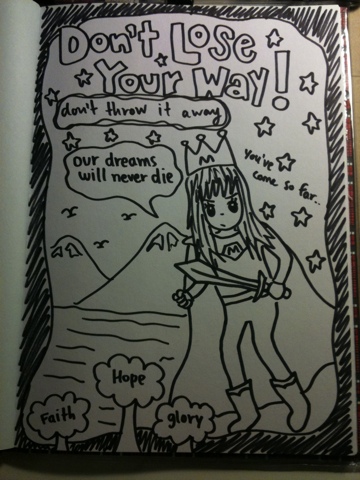 Don't Lose
Your Way!
don't throw it away
our dreams
will never die
You've
come so far..
M
M
Hope
Faith
glory